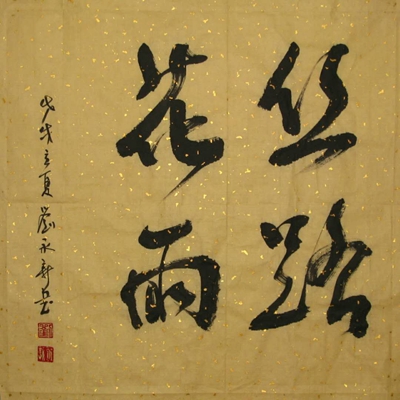 丝路
花雨
戊戌立夏 劉永新